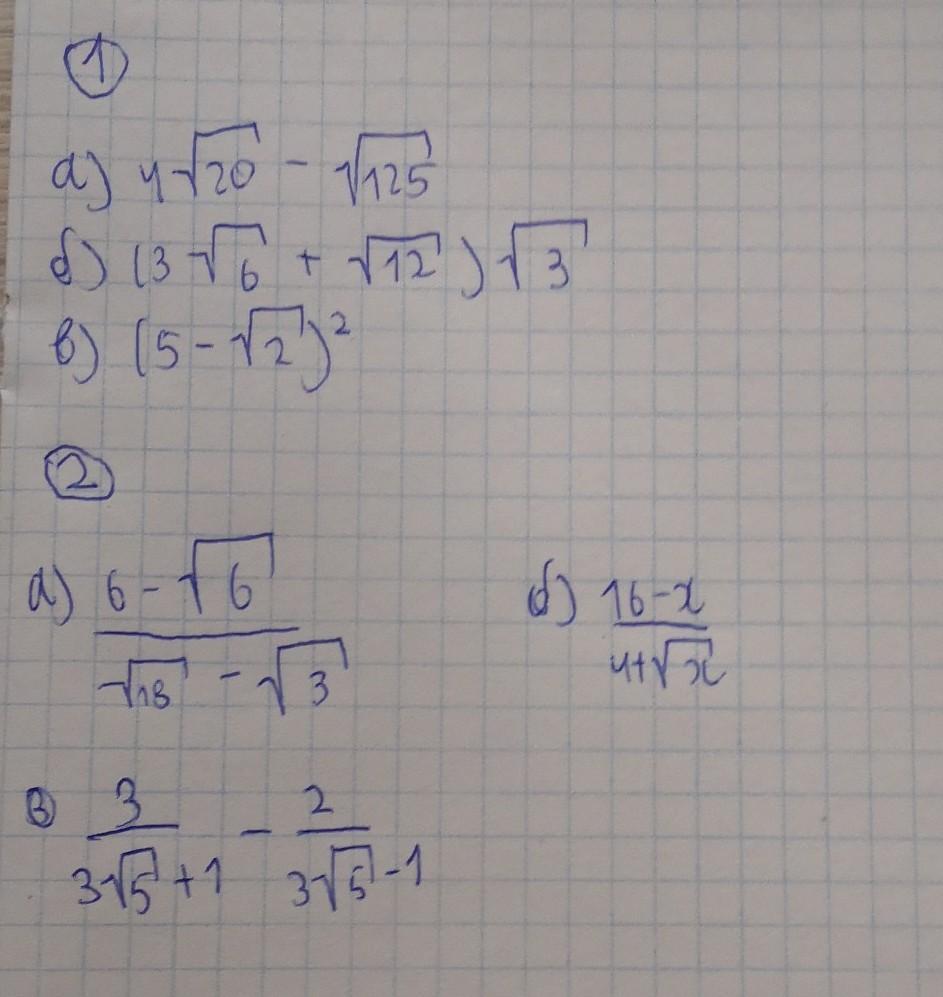 1
а) 4√20 - √125
б) (3√6 + √12)√3
в) (5 - √2)²
2
а) (6 - √6)/(√18 - √3) б) (16-x)/(4+√x)
в 3/(3√5+1) - 2/(3√5-1)